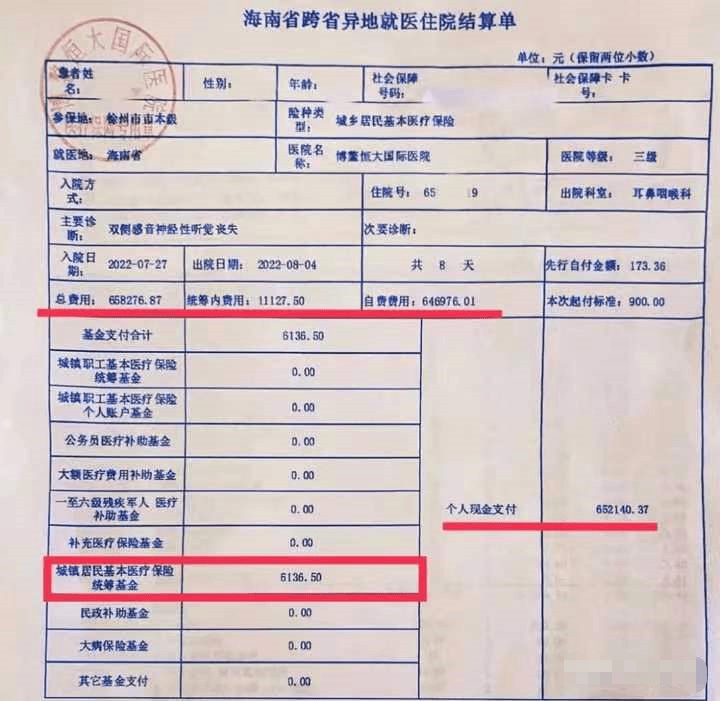 海南省跨省异地就医住院结算单
单位：元（保留两位小数）
患者姓名： 性别： 年龄： 社会保障号码： 社会保障卡 卡号：
参保地：徐州市市本级 险种类型： 城乡居民基本医疗保险
就医地：海南省 医院名称： 博鳌恒大国际医院 医院等级： 三级
入院方式： 住院号：65 19 出院科室： 耳鼻咽喉科
主要诊断： 双侧感音神经性听觉丧失 次要诊断：
入院日期： 2022-07-27 出院日期： 2022-08-04 共 8 天 先行自付金额：173.36
总费用： 658276.87 统筹内费用：11127.50 自费费用：646976.01 本次起付标准：900.00
基金支付合计 6136.50
城镇职工基本医疗保险统筹基金 0.00
城镇职工基本医疗保险个人账户基金 0.00
公务员医疗补助基金 0.00
大额医疗费用补助基金 0.00
一至六级残疾军人 医疗补助基金 0.00
个人现金支付 652140.37
补充医疗保险基金 0.00
城镇居民基本医疗保险统筹基金 6136.50
民政补助基金 0.00
大病保险基金 0.00
其它基金支付 0.00